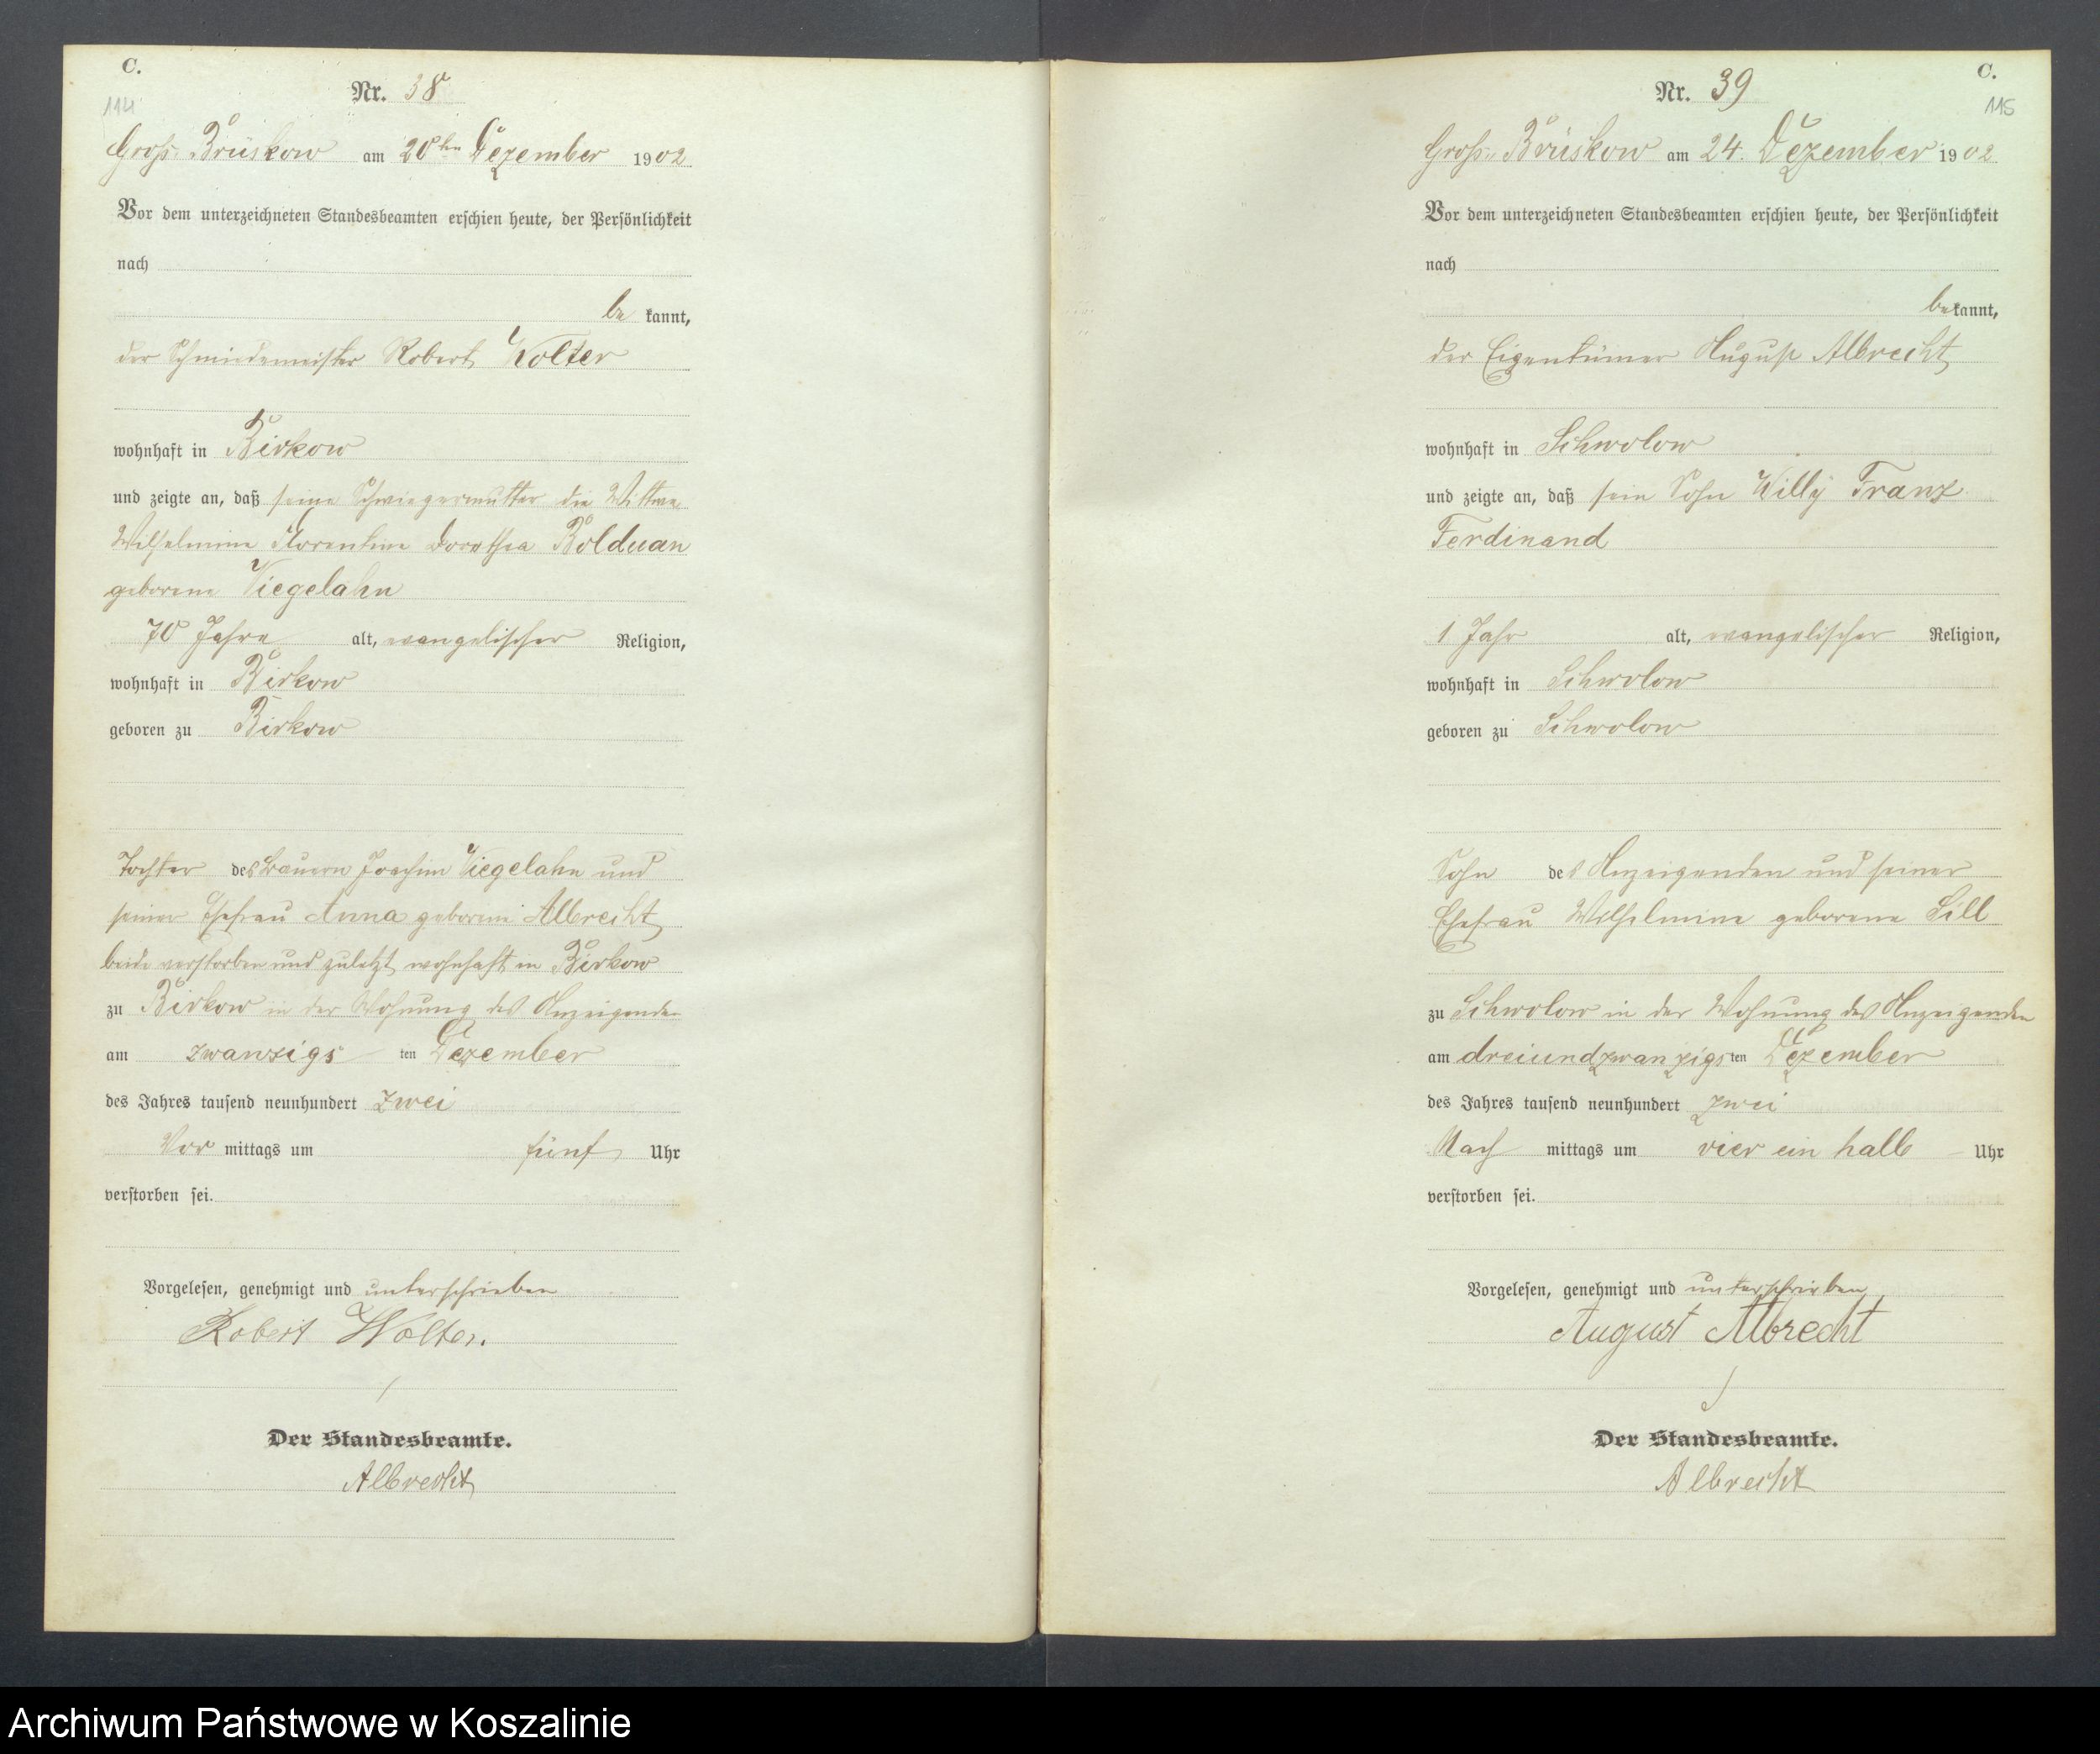 C.
114
Nr. 38
Groß Brüskow am 20ten Dezember 1902
Vor dem unterzeichneten Standesbeamten erschien heute, der Persönlichkeit
nach
be kannt,
der Schmiedemeister Robert Wolter
wohnhaft in Birkow
und zeigte an, daß seine Schwiegermutter die Wittwe
Wilhelmine Florentine Dorothea Bolduan
geborene Viegelahn
70 Jahre alt, evangelischer Religion,
wohnhaft in Birkow
geboren zu Birkow
Tochter des Bauern Joachim Viegelahn und
seiner Ehefrau Anna geborene Albrecht
beide verstorben und zuletzt wohnhaft in Birkow
zu Birkow in der Wohnung des Anzeigenden
am zwanzigs ten Dezember
des Jahres tausend neunhundert zwei
Vor mittags um fünf Uhr
verstorben sei.
Vorgelesen, genehmigt und unterschrieben
Robert Wolter.
Der Standesbeamte.
Albrecht
C.
115
Nr. 39
Groß Brüskow am 24. Dezember 1902
Vor dem unterzeichneten Standesbeamten erschien heute, der Persönlichkeit
nach
bekannt,
der Eigentümer August Albrecht
wohnhaft in Schwolow
und zeigte an, daß sein Sohn Willy Franz
Ferdinand
1 Jahr alt, evangelischer Religion,
wohnhaft in Schwolow
geboren zu Schwolow
Sohn des Anzeigenden und seiner
Ehefrau Wilhelmine geborene Sill
zu Schwolow in der Wohnung des Anzeigenden
am dreiundzwanzigsten Dezember
des Jahres tausend neunhundert zwei
Nach mittags um vier ein halb Uhr
verstorben sei.
Vorgelesen, genehmigt und unterschrieben
August Albrecht
Der Standesbeamte.
Albrecht
Archiwum Państwowe w Koszalinie